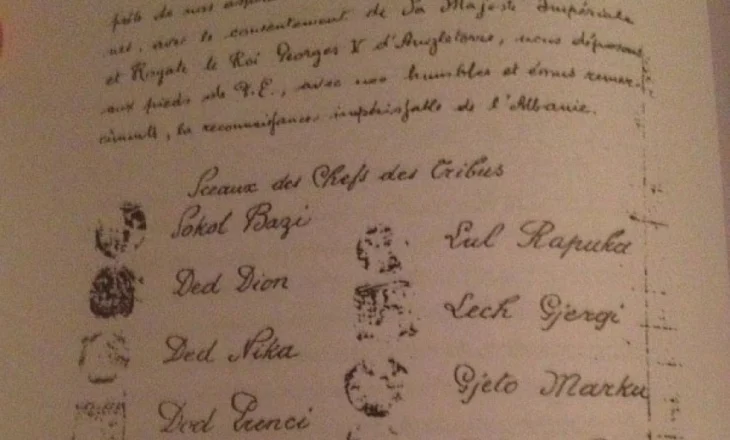 près de nos
nes, avec le consentement de Sa Majesté Impériale
et Royale le Roi Georges V d'Angleterre, nous déposons
aux pieds de V.E., avec nos humbles et émus remer-
ciments, la reconnaissance impérissable de l'Albanie.
Sceaux des Chefs des Tribus
Sokol Bazi
Lul Rapuka
Ded Dion
Lech Gjergi
Ded Nika
Gjeto Marku
Dod Prenci